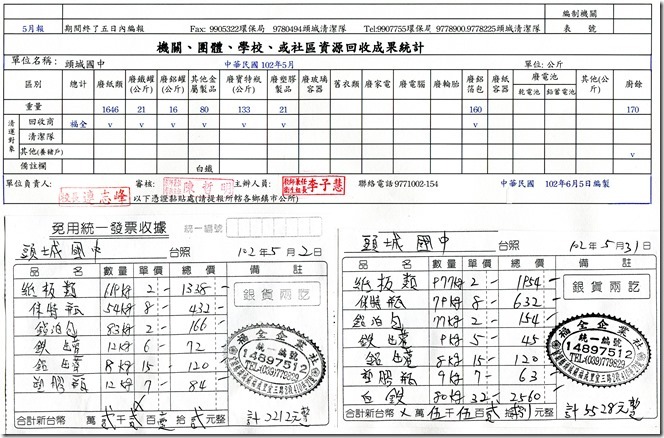 編製機關
5月報 期間終了五日內編報 Fax: 9905322環保局 9780494頭城清潔隊 Tel:9907755環保局 9778900.9778225頭城清潔隊 表 號
機關、團體、學校、或社區資源回收成果統計
單位名稱: 頭城國中 中華民國 102年5月 單位: 公斤
區別 總計 廢紙類 廢鐵罐(公斤) 廢鋁罐(公斤) 其他金屬製品 廢寶特瓶(公斤) 廢塑膠製品 廢玻璃容器 舊衣類 廢家電 廢電腦 廢輪胎 廢鋁箔包 廢紙容器 廢電池 乾電池 鉛蓄電池 其他(公斤) 廢餘
重量 1646 21 16 80 133 21 160 170
清運對象
回收商 福全 v v v v v v v
清潔隊
其他(養豬戶) v
備註欄 白鐵
單位負責人: 校長 審核: 主辦人員: 李子慧 聯絡電話9771002-154 中華民國 102年6月5日編製
以下憑證黏貼處(請提報所轄各鄉鎮市公所)
免用統一發票收據 統一編號
頭城國中 台照 102年5月2日
品 名 數量 單價 總價 備 註
紙板類 2 1338
保特瓶 54kg 8 432
鋁泊包 83kg 2 166
鉄罐 12kg 6 72
鋁罐 8kg 15 120
塑膠瓶 12kg 7 84
銀貨兩訖
福全企業社
統一編號
14897512
合計新台幣 萬 貳仟 貳佰 壹拾 貳元整 計2212元整
頭城國中 台照 102年5月31日
品 名 數量 單價 總價 備 註
紙板類 977kg 2 1954
保特瓶 79kg 8 632
鋁泊包 77kg 2 154
鉄罐 9kg 5 45
鋁罐 8kg 15 120
塑膠瓶 9kg 7 63
白鉄 80kg 32 2560
銀貨兩訖
福全企業社
統一編號
14897512
合計新台幣 萬 伍仟 伍佰 貳拾 捌元整 計5528元整